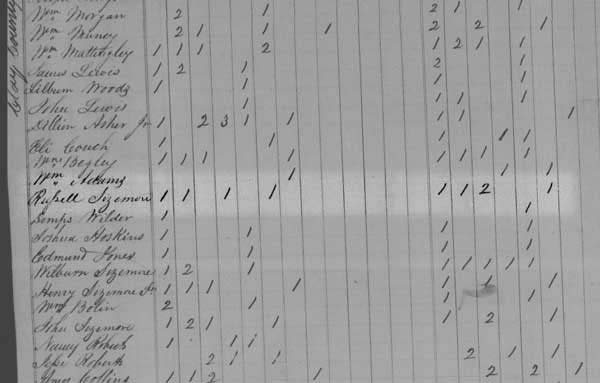 Clay County
Wm Morgan 2 1 2 1 1
Wm Muncy 2 1 1 1 2 2 1
Wm Mattingley 1 1 1 2 1 2 1 1
James Lewis 1 2 1 2 1
Lilburn Woods 1 1 1 1
John Lewis 1 1 1 1
Dillion Asher Jr 1 2 3 1 1 1 1 1
Eli Couch 1 1 1 1 1
Wm Begley 1 1 1 1 1 1 1 1
Wm Adams 1 1 1
Russell Sizemore 1 1 1 1 1 1 2 1
Wilder 1 1
Joshua Hoskins 1 1 1 1
Edmund Jones 1 1 1 1
Wilburn Sizemore 1 2 1 1 1 1 1
Henry Sizemore Sr 1 1 1 1 1 1 1
Wm Bolin 2 1 1 1
John Sizemore 1 2 1 1 1 2 1
Nancy Roberts 1 1 1
Roberts 2 1 1 2 1 1
Collins 1 1 2 1 2 2 1